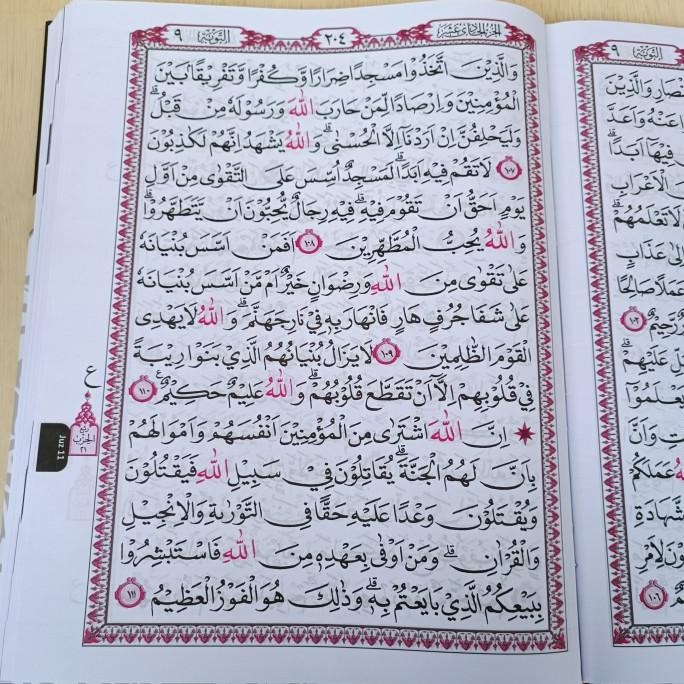 الجزء الحادي عشر
٢٠٤
التوبة ٩
وَالَّذِيْنَ اتَّخَذُوْا مَسْجِدًا ضِرَارًا وَّكُفْرًا وَّتَفْرِيْقًاۢ بَيْنَ
الْمُؤْمِنِيْنَ وَاِرْصَادًا لِّمَنْ حَارَبَ اللّٰهَ وَرَسُوْلَهٗ مِنْ قَبْلُۗ
وَلَيَحْلِفُنَّ اِنْ اَرَدْنَآ اِلَّا الْحُسْنٰىۗ وَاللّٰهُ يَشْهَدُ اِنَّهُمْ لَكٰذِبُوْنَ
١٠٧ لَا تَقُمْ فِيْهِ اَبَدًاۗ لَمَسْجِدٌ اُسِّسَ عَلَى التَّقْوٰى مِنْ اَوَّلِ
يَوْمٍ اَحَقُّ اَنْ تَقُوْمَ فِيْهِۗ فِيْهِ رِجَالٌ يُّحِبُّوْنَ اَنْ يَّتَطَهَّرُوْاۗ
وَاللّٰهُ يُحِبُّ الْمُطَّهِّرِيْنَ ١٠٨ اَفَمَنْ اَسَّسَ بُنْيَانَهٗ
عَلٰى تَقْوٰى مِنَ اللّٰهِ وَرِضْوَانٍ خَيْرٌ اَمْ مَّنْ اَسَّسَ بُنْيَانَهٗ
عَلٰى شَفَا جُرُفٍ هَارٍ فَانْهَارَ بِهٖ فِيْ نَارِ جَهَنَّمَۗ وَاللّٰهُ لَا يَهْدِى
الْقَوْمَ الظّٰلِمِيْنَ ١٠٩ لَا يَزَالُ بُنْيَانُهُمُ الَّذِيْ بَنَوْا رِيْبَةً
فِيْ قُلُوْبِهِمْ اِلَّآ اَنْ تَقَطَّعَ قُلُوْبُهُمْۗ وَاللّٰهُ عَلِيْمٌ حَكِيْمٌ ١١٠
اِنَّ اللّٰهَ اشْتَرٰى مِنَ الْمُؤْمِنِيْنَ اَنْفُسَهُمْ وَاَمْوَالَهُمْ
بِاَنَّ لَهُمُ الْجَنَّةَۗ يُقَاتِلُوْنَ فِيْ سَبِيْلِ اللّٰهِ فَيَقْتُلُوْنَ
وَيُقْتَلُوْنَ وَعْدًا عَلَيْهِ حَقًّا فِى التَّوْرٰىةِ وَالْاِنْجِيْلِ
وَالْقُرْاٰنِۗ وَمَنْ اَوْفٰى بِعَهْدِهٖ مِنَ اللّٰهِ فَاسْتَبْشِرُوْا
بِبَيْعِكُمُ الَّذِيْ بَايَعْتُمْ بِهٖۗ وَذٰلِكَ هُوَ الْفَوْزُ الْعَظِيْمُ ١١١
ع
ربع
الحزب
٢١
Juz 11
التوبة ٩